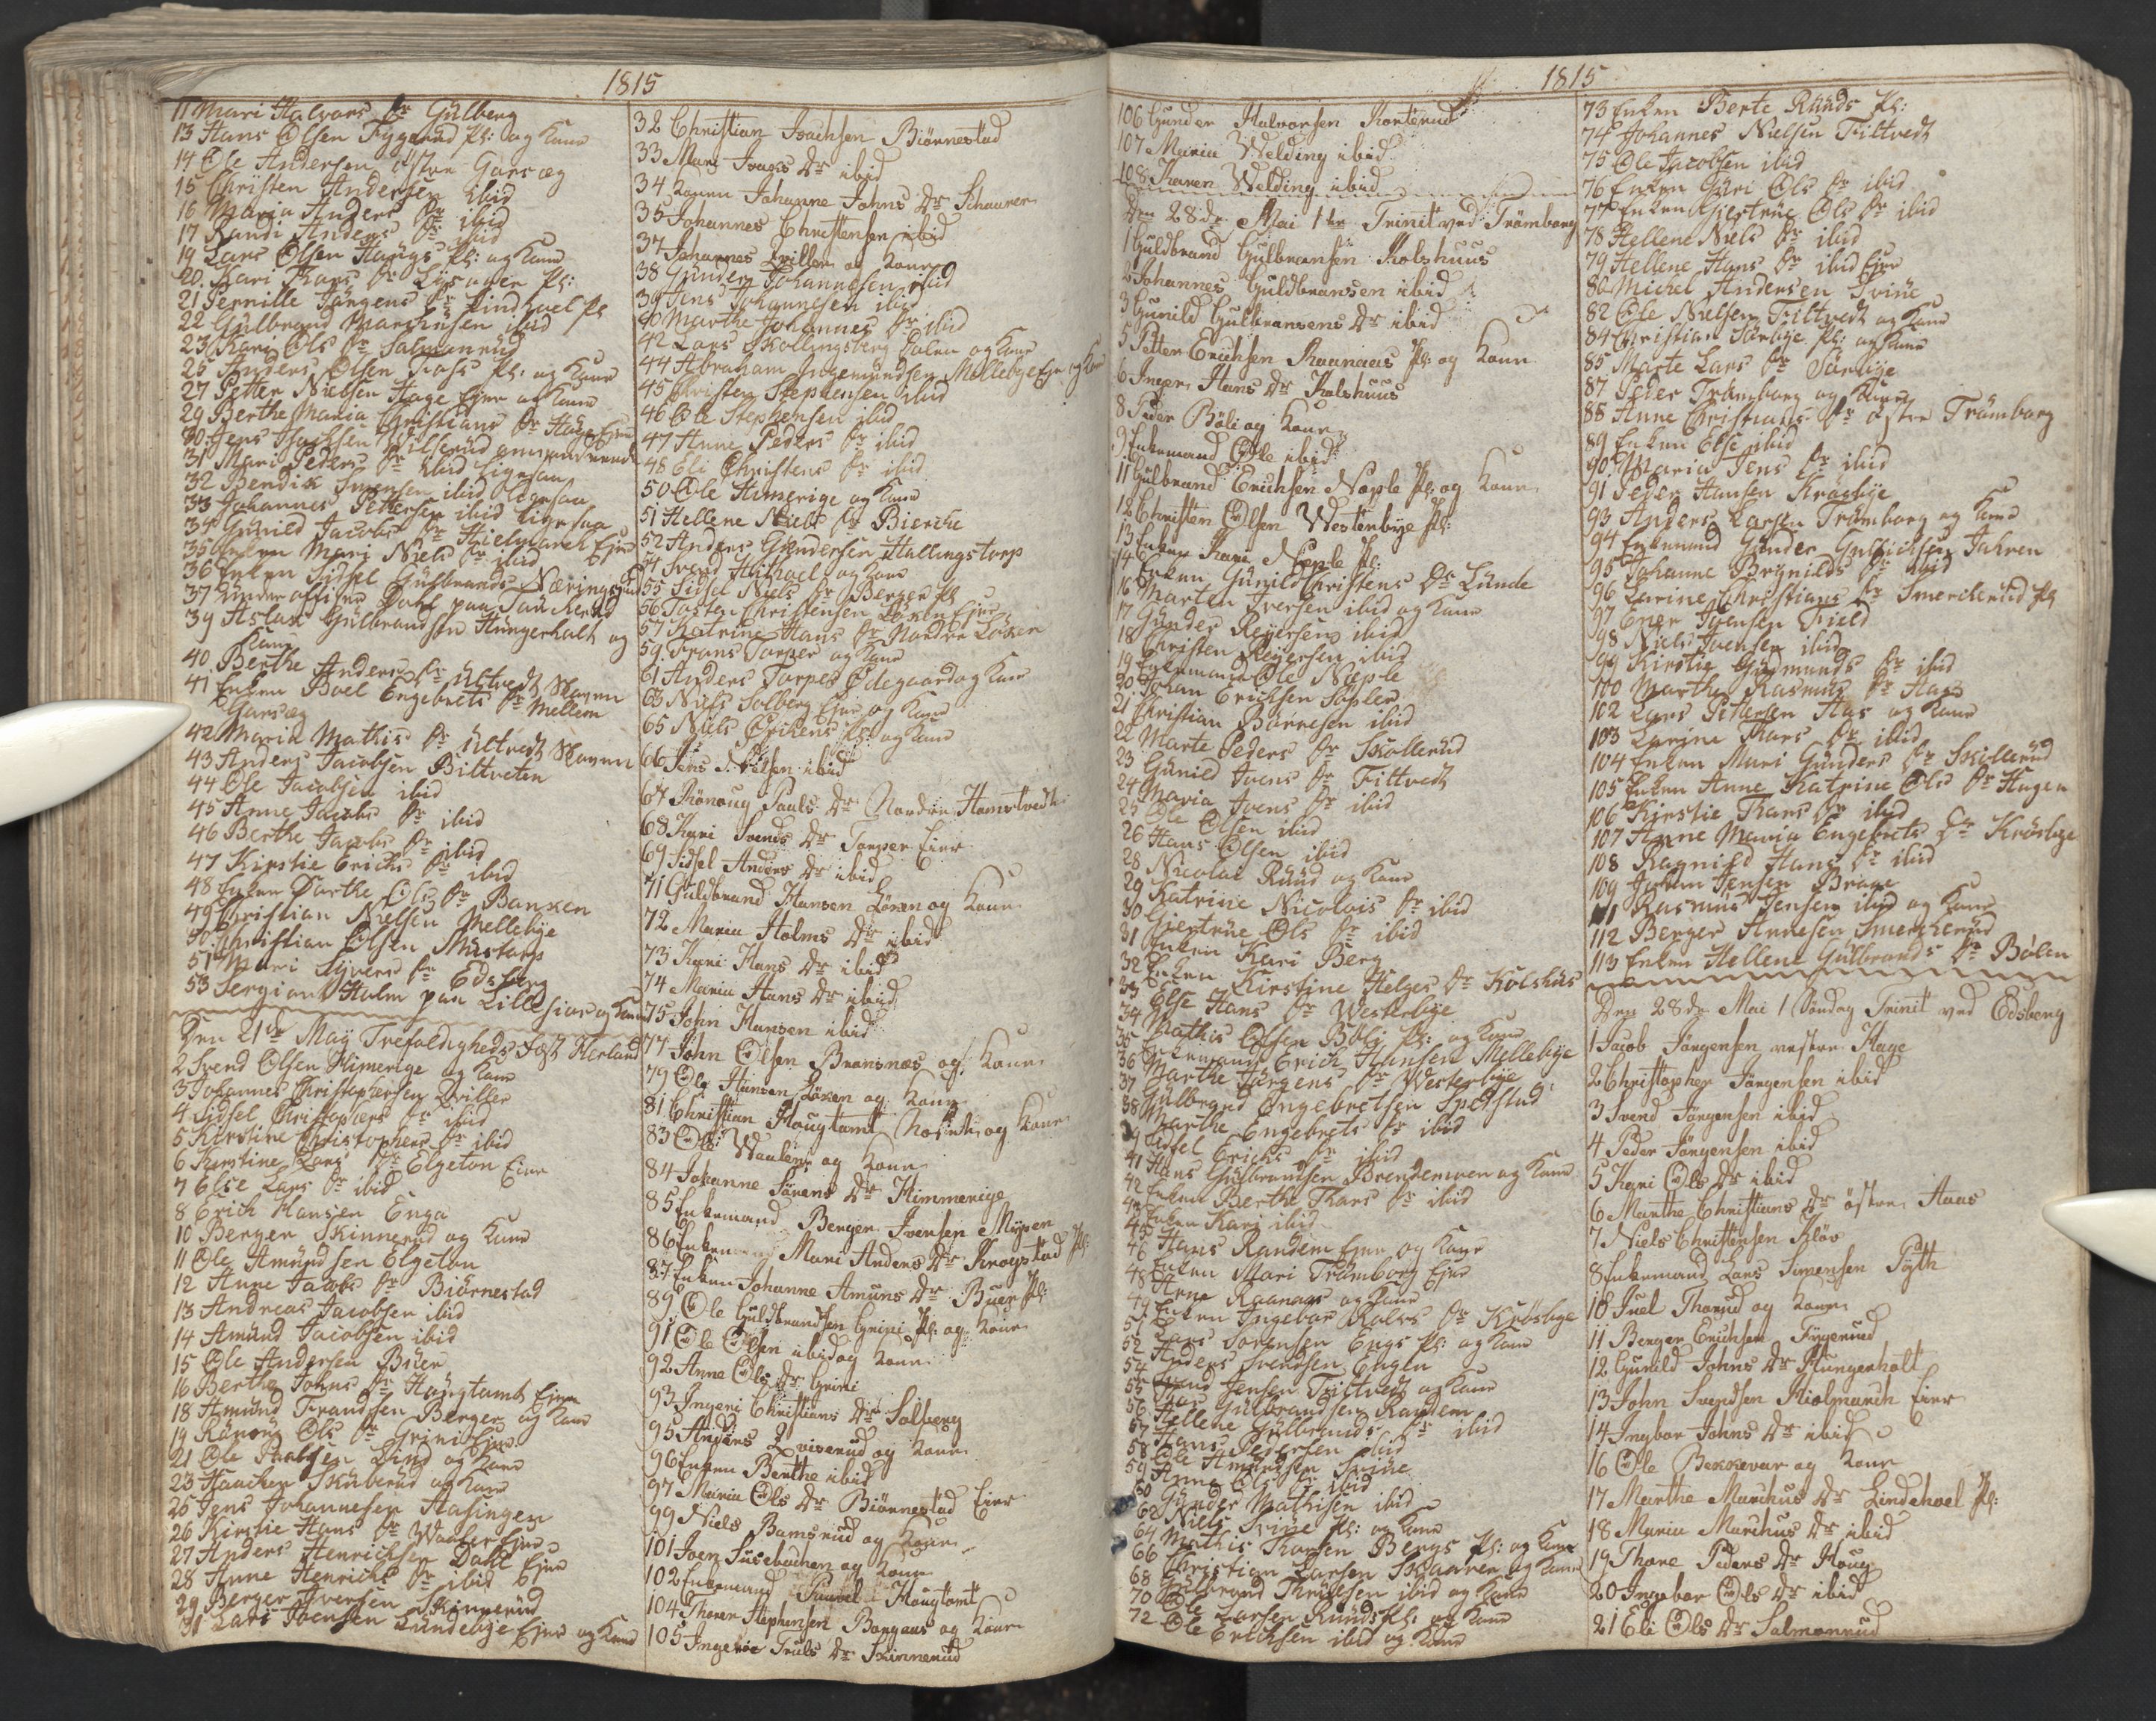 1815
11 Mari Halvors Dr Gulberg
13 Hans Olsen Fygerud Pl: og Kone
14 Ole Andersen østre Garsæg
15 Christen Andersen ibid
16 Maria Anders Dr ibid
17 Randi Anders Dr ibid
19 Lars Olsen Haugs Pl: og Kone
20. Kari Lars Dr Pl:
21 Pernille Jørgens Dr Lindhoel Pl
22 Gulbrand Marchusen ibid
23 Kari Ols Dr Salmonrud
25 Anders Olsen Foss Pl: og Kone
27 Petter Nielsen Hage Ejer og Kone
29 Berthe Maria Christians Dr Hage Ejer
30. Jens Isachsen
31 Mari Peders Dr ibid ligesaa
32 Bendix Svensen ibid ligesaa
33 Johannes Pettersen ibid ligesaa
34 Gunild Jacobs Dr Hielmarck Ejer
35 Enken Mari Niels Dr ibid
36 Enken Sidsel Gulbrands Næringsrud
37 Underofficer Dahl paa
39 Aslak Gulbrandsen Hungerholt og
Kone
40 Berthe Anders Dr Ultvedt Skoven
41 Enken Boel Engebrets Dr Mellem
Garsæg
42 Maria Mathis Dr Ultvedt Skoven
43 Anders Jacobsen Biltveten
44 Ole Jacobsen ibid
45 Anne Jacobs Dr ibid
46 Berthe Jacobs Dr ibid
47 Kirstie Erichs Dr ibid
48 Enken Dorthe Ols Dr Banken
49 Christian Nielsen Mellebye
50. Christian Olsen Mustorp
51 Mari Syvers Dr Edsberg
53 Sergiant Holm paa Lillesior og Kone
Den 21de May Trefoldigheds Fest Herland
2 Svend Olsen Himerige og Kone
3 Johannes Christophersen Qviller
4 Sidsel Christophers Dr ibid
5 Kirstine Christophers Dr ibid
6 Kirstine Lars Dr Elgeton Eier
7 Else Lars Dr ibid
8 Erich Hansen Enga
10 Berger Skinnerud og Kone
11 Ole Amundsen Elgeton
12 Anne Jacobs Dr Biørnestad
13 Andreas Jacobsen ibid
14 Amund Jacobsen ibid
15 Ole Andersen Buer
16 Berthe Johns Dr Haugtamt Ejer
18 Amund Frandsen Berger og Kone
19 Rønoug Ols Dr Grini Ejer
21 Ole Paulsen Lund og Kone
23 Haachen Skuberud og Kone
25 Jens Johannesen Hasingen
26 Kirstie Hans Dr Waaler Ejer
27 Anders Henrichsen Dahl Ejer
28 Anne Henrichs Dr ibid Ejer
29 Berger Iversen Skinnerud
31 Lars Iversen Lundebye Ejer og Kone
32 Christian Isachsen Biørnestad
33 Mari Isacs Dr ibid
34 Konen Johanne Johns Dr Schauren
35 Johannes Christensen ibid
37 Johannes Qviller og Kone
38 Gunder Johannesen ibid
39 Jens Johannesen ibid
40 Marthe Johannes Dr ibid
42 Lars Skollingsberg Dalen og Kone
44 Abraham Ingemundsen Mellebye Ejer og Kone
45 Christen Stephensen ibid
46 Ole Stephensen ibid
47 Anne Peders Dr ibid
48 Eli Christens Dr ibid
50 Ole Himerige og Kone
51 Hellene Niels Dr Bierche
52 Anders Gundersen Hallingstorp
54 Svend Mithael og Kone
55 Sidsel Niels Dr Berger Pl
56 Tosten Christensen Løken Ejer
57 Katrine Hans Dr Nordre Løken
59. Frans Torper og Kone
61 Anders Torper Ødegaard og Kone
63 Niels Solberg Ejer og Kone
65 Niels Pl: og Kone
66 Jens Nielsen ibid
67 Rønoug Pauls Dr Nordre Hamstvedt
68 Kari Svends Dr Torper Eier
69 Sidsel Anders Dr ibid
71 Guldbrand Hansen Løken og Kone
72 Maria Holms Dr ibid
73 Kari Hans Dr ibid
74 Maria Hans Dr ibid
75 John Hansen ibid
77 John Olsen Bransnæs og Kone
79 Ole Hansen Løken og Kone
81 Christian Hougtamt og Kone
83 Ole Waalens og Kone
84 Johanne Sørens Dr Himmerige
85 Enkemand Berger Iversen Mysen
86 Enken Mari Anders Dr Krogstad Pl:
87 Enken Johanne Amuns Dr Buer Pl:
89. Ole Guldbrandsen Grini Pl: og Kone
91 Ole Olsen ibid og Kone
92 Anne Ols Dr Grini
93 Ingeri Christians Dr Solberg
95 Anders Qviverud og Kone
96 Enken Berthe ibid
97 Maria Ols Dr Biørnestad Eier
99 Niels Bamsrud og Kone
101 Joen Susebachen og Kone
102 Enkemand Hougtomt
104 Thorer Stephensen Bongaas og Kone
105 Ingeboe Truls Dr Skinnerud
1815
106 Gunder Halvorsen Korterud
107 Maria Welding ibid
108 Karen Welding ibid
Den 28de Mai 1te Trinit ved Trømborg
1 Guldbrand Gulbransen Kolshuus
2 Johannes Guldbransen ibid
3 Gunild Gulbransens Dr ibid
5 Petter Erichsen Raanaas Pl: og Kone
6 Inger Hans Dr Kolshuus
8 Peder Bøli og Kone
9 Enkemand Ole ibid
11 Gulbrand Erichsen Nøple Pl: og Kone
12 Christen Olsen Westenbye Pl:
13 Enken Kari Nøple Pl:
14 Enken Gunild Christens Dr Lunde
16 Morten Iversen ibid og Kone
17 Gunder Reyersen ibid
18 Christen Reyersen ibid
19 Enkemand Ole Nøple
20. Johan Erichsen Søpler
21 Christian Børresen ibid
22 Marte Peders Dr Skollerud
23 Gunild Ivers Dr Fittvedt
24 Maria Ivers Dr ibid
25 Ole Olsen ibid
26 Hans Olsen ibid
28 Nicolai Ruud og Kone
29 Katrine Nicolais Dr ibid
30 Giertrue Ols Dr ibid
31 Enken Kari Berg
32 Enken Kirstine Helges Dr Kolshus
33 Else Hans Dr Westerbye
34 Mathis Olsen Bøli Pl: og Kone
35 Enkemand Erich Hansen Mellebye
36 Marthe Jørgens Dr Westerbye
37 Gulbrand Engebretsen Spedstad
38 Marthe Engebrets Dr ibid
39 Sidsel Erichs Dr ibid
41 Hans Gulbrandsen Brendemoen og Kone
42 Enken Berthe Lars Dr ibid
43 Enken Kari ibid
45 Hans Randem Ejer og Kone
46 Enken Mari Trømborg Ejer
48 Arne Raanaas og Kone
49 Enken Ingebor Rolvs Dr Krøsbye
51 Lars Sørensen Engs Pl: og Kone
52 Anders Svendsen Engen
54 Svend Jensen Fittvedt og Kone
55 Gulbrandsen Randem
56 Hellene Gulbrands Dr ibid
57 Hans Pedersen ibid
58 Ole Amundsen Sviue
59 Anne Ols Dr ibid
60 Gunder Mathisen ibid
62 Niels Sviue Pl: og Kone
64 Mathis Thorsen Bergs Pl: og Kone
66 Christian Larsen Skaaren og Kone
68 Gulbrand Thruelsen ibid og Kone
70 Ole Larsen Ruuds Pl: og Kone
72 Ole Erichsen ibid og Kone
73 Enken Berte Ruuds Pl:
74 Johannes Nielsen Fittvedt
75 Ole Jacobsen ibid
76 Enken Guri Ols Dr ibid
77 Enken Giertrue Ols Dr ibid
78 Hellene Niels Dr ibid
79 Hellene Hans Dr ibid Ejer
80 Michel Andersen Sviue
82 Ole Nielsen Fittvedt og Kone
84 Christian Sørbye Pl: og Kone
85 Marte Lars Dr Sørbye
87 Peder Trømborg og Kone
88 Anne Christians Dr østre Trømborg
89 Enken Else ibid
90 Maria Jens Dr ibid
91 Peder Hansen Krøsbye
93 Anders Larsen Trømborg og Kone
94 Enkemand Gunder Gulichsen Jahren
95 Johanne Brynilds Dr ibid
96 Karine Christians Dr Smerckerud Pl
97 Ener Iversen Field
98 Niels Iversen ibid
99 Kirstie Gudmunds Dr ibid
100 Marthe Rasmus Dr Haas
102 Lars Pettersen Aas og Kone
103 Karine Lars Dr ibid
104 Enken Mari Gunders Dr Skollerud
105 Enken Anne Katrine Ols Dr Haugen
106 Kirstie Lars Dr ibid
107 Anne Maria Engebrets Dr Krøsbye
108 Ragnild Hans Dr ibid
109 Johan Jensen Brage
111 Rasmus Jensen ibid og Kone
112 Berger Arnesen Smerckerud
113 Enken Hellene Gulbrands Dr Bølen
Den 28de Mai 1 Søndag Trinit ved Edsberg
1 Jacob Jørgensen vestre Hage
2 Christopher Jørgensen ibid
3 Svend Jørgensen ibid
4 Peder Jørgensen ibid
5 Kari Ols Dr ibid
6 Marthe Christians Dr østre Aaas
7 Niels Christensen Kløv
8 Enkemand Lars Simensen Toth
10 Juel Thorud og Kone
11 Berger Erichsen Fygerud
12 Gunild Johns Dr Hungerholt
13 John Svendsen Hiolmarch Eier
14 Ingbor Johns Dr ibid
16 Ole Bekkevar og Kone
17 Marthe Marchus Dr Lindehoel Pl:
18 Maria Marchus Dr ibid
19 Thore Peders Dr Houg
20 Ingebor Ols Dr ibid
21 Eli Ols Dr Salmonrud